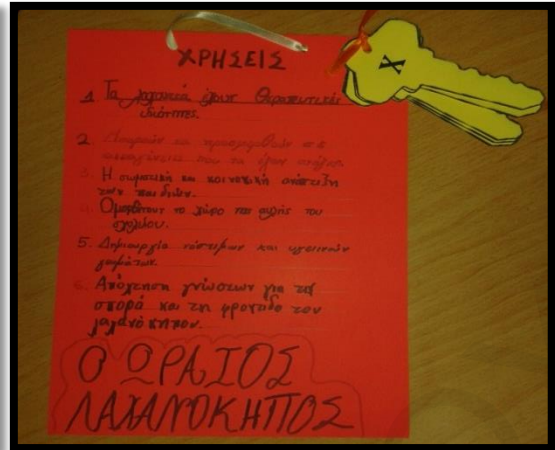 ΧΡΗΣΕΙΣ
Χ
1 Τα λαχανικά έχουν θεραπευτικές
ιδιότητες.
2. και σε
που τα έχουν ανάγκη
3. Η σωματική και κοινωνική ανάπτυξη
των παιδιών.
4. το χώρο της αυλής του
σχολείου.
5. Δημιουργία νόστιμων και υγιεινών
γευμάτων.
6. Απόχτηση γνώσεων για τη
σπορά και τη φροντίδα του
λαχανόκηπου.
Ο ΩΡΑΙΟΣ
ΛΑΧΑΝΟΚΗΠΟΣ